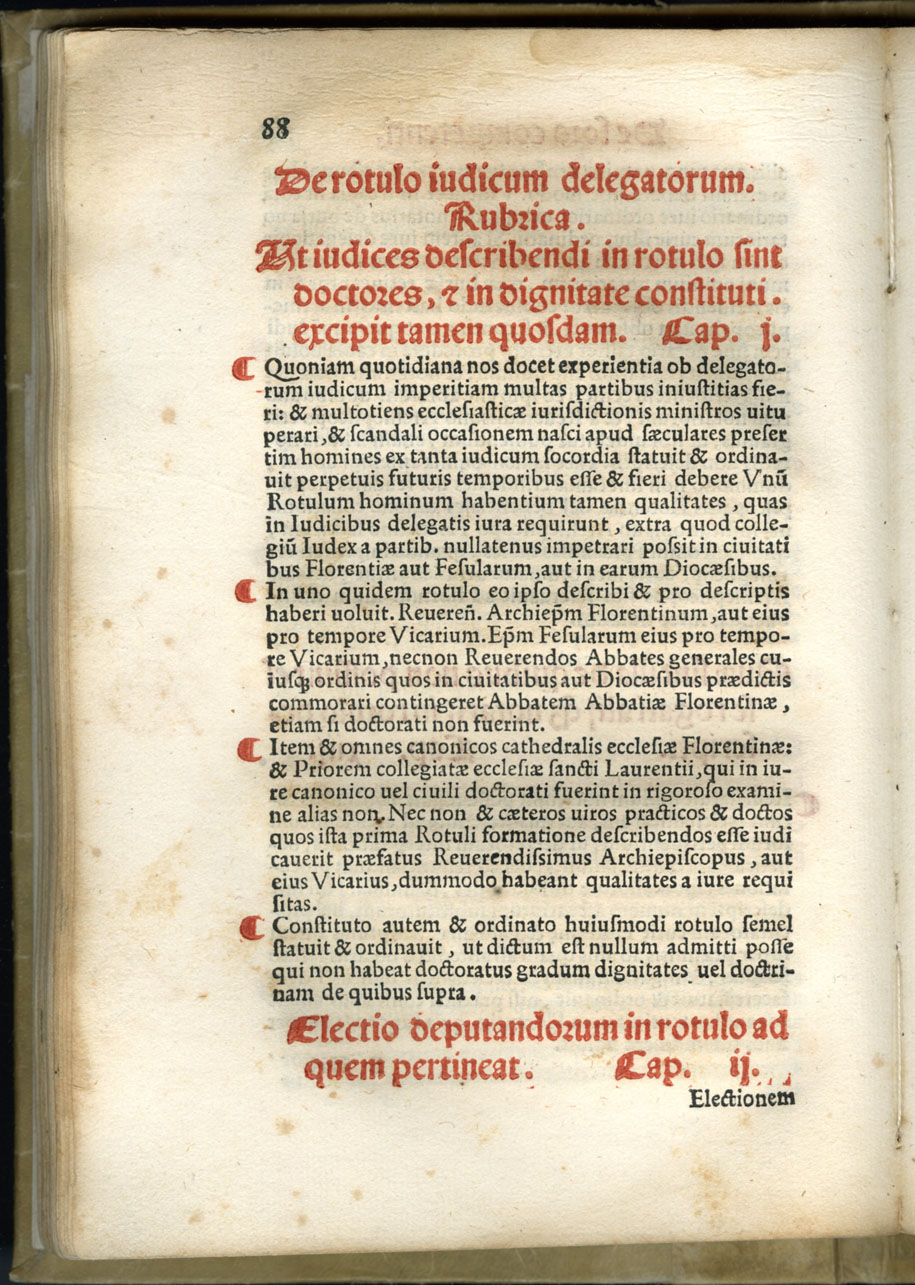 88
De rotulo iudicum delegatorum.
Rubrica.
Ut iudices describendi in rotulo sint
doctores, ⁊ in dignitate constituti.
excipit tamen quosdam. Cap. j.
¶ Quoniam quotidiana nos docet experientia ob delegato-
rum iudicum imperitiam multas partibus iniustitias fie-
ri: & multotiens ecclesiasticæ iurisdictionis ministros uitu
perari, & scandali occasionem nasci apud sæculares preser
tim homines ex tanta iudicum socordia statuit & ordina-
uit perpetuis futuris temporibus esse & fieri debere Vnũ
Rotulum hominum habentium tamen qualitates, quas
in Iudicibus delegatis iura requirunt, extra quod colle-
giũ Iudex a partib. nullatenus impetrari possit in ciuitati
bus Florentiæ aut Fesularum, aut in earum Diocæsibus.
¶ In uno quidem rotulo eo ipso describi & pro descriptis
haberi uoluit. Reueren̄. Archiep̄m Florentinum, aut eius
pro tempore Vicarium. Ep̄m Fesularum eius pro tempo-
re Vicarium, necnon Reuerendos Abbates generales cu-
iusqꝫ ordinis quos in ciuitatibus aut Diocæsibus prædictis
commorari contingeret Abbatem Abbatiæ Florentinæ,
etiam si doctorati non fuerint.
¶ Item & omnes canonicos cathedralis ecclesiæ Florentinæ:
& Priorem collegiatæ ecclesiæ sancti Laurentii, qui in iu-
re canonico uel ciuili doctorati fuerint in rigoroso exami-
ne alias non. Nec non & cæteros uiros practicos & doctos
quos ista prima Rotuli formatione describendos esse iudi
cauerit præfatus Reuerendissimus Archiepiscopus, aut
eius Vicarius, dummodo habeant qualitates a iure requi
sitas.
¶ Constituto autem & ordinato huiusmodi rotulo semel
statuit & ordinauit, ut dictum est nullum admitti posse
qui non habeat doctoratus gradum dignitates uel doctri-
nam de quibus supra.
Electio deputandorum in rotulo ad
quem pertineat. Cap. ij.
Electionem